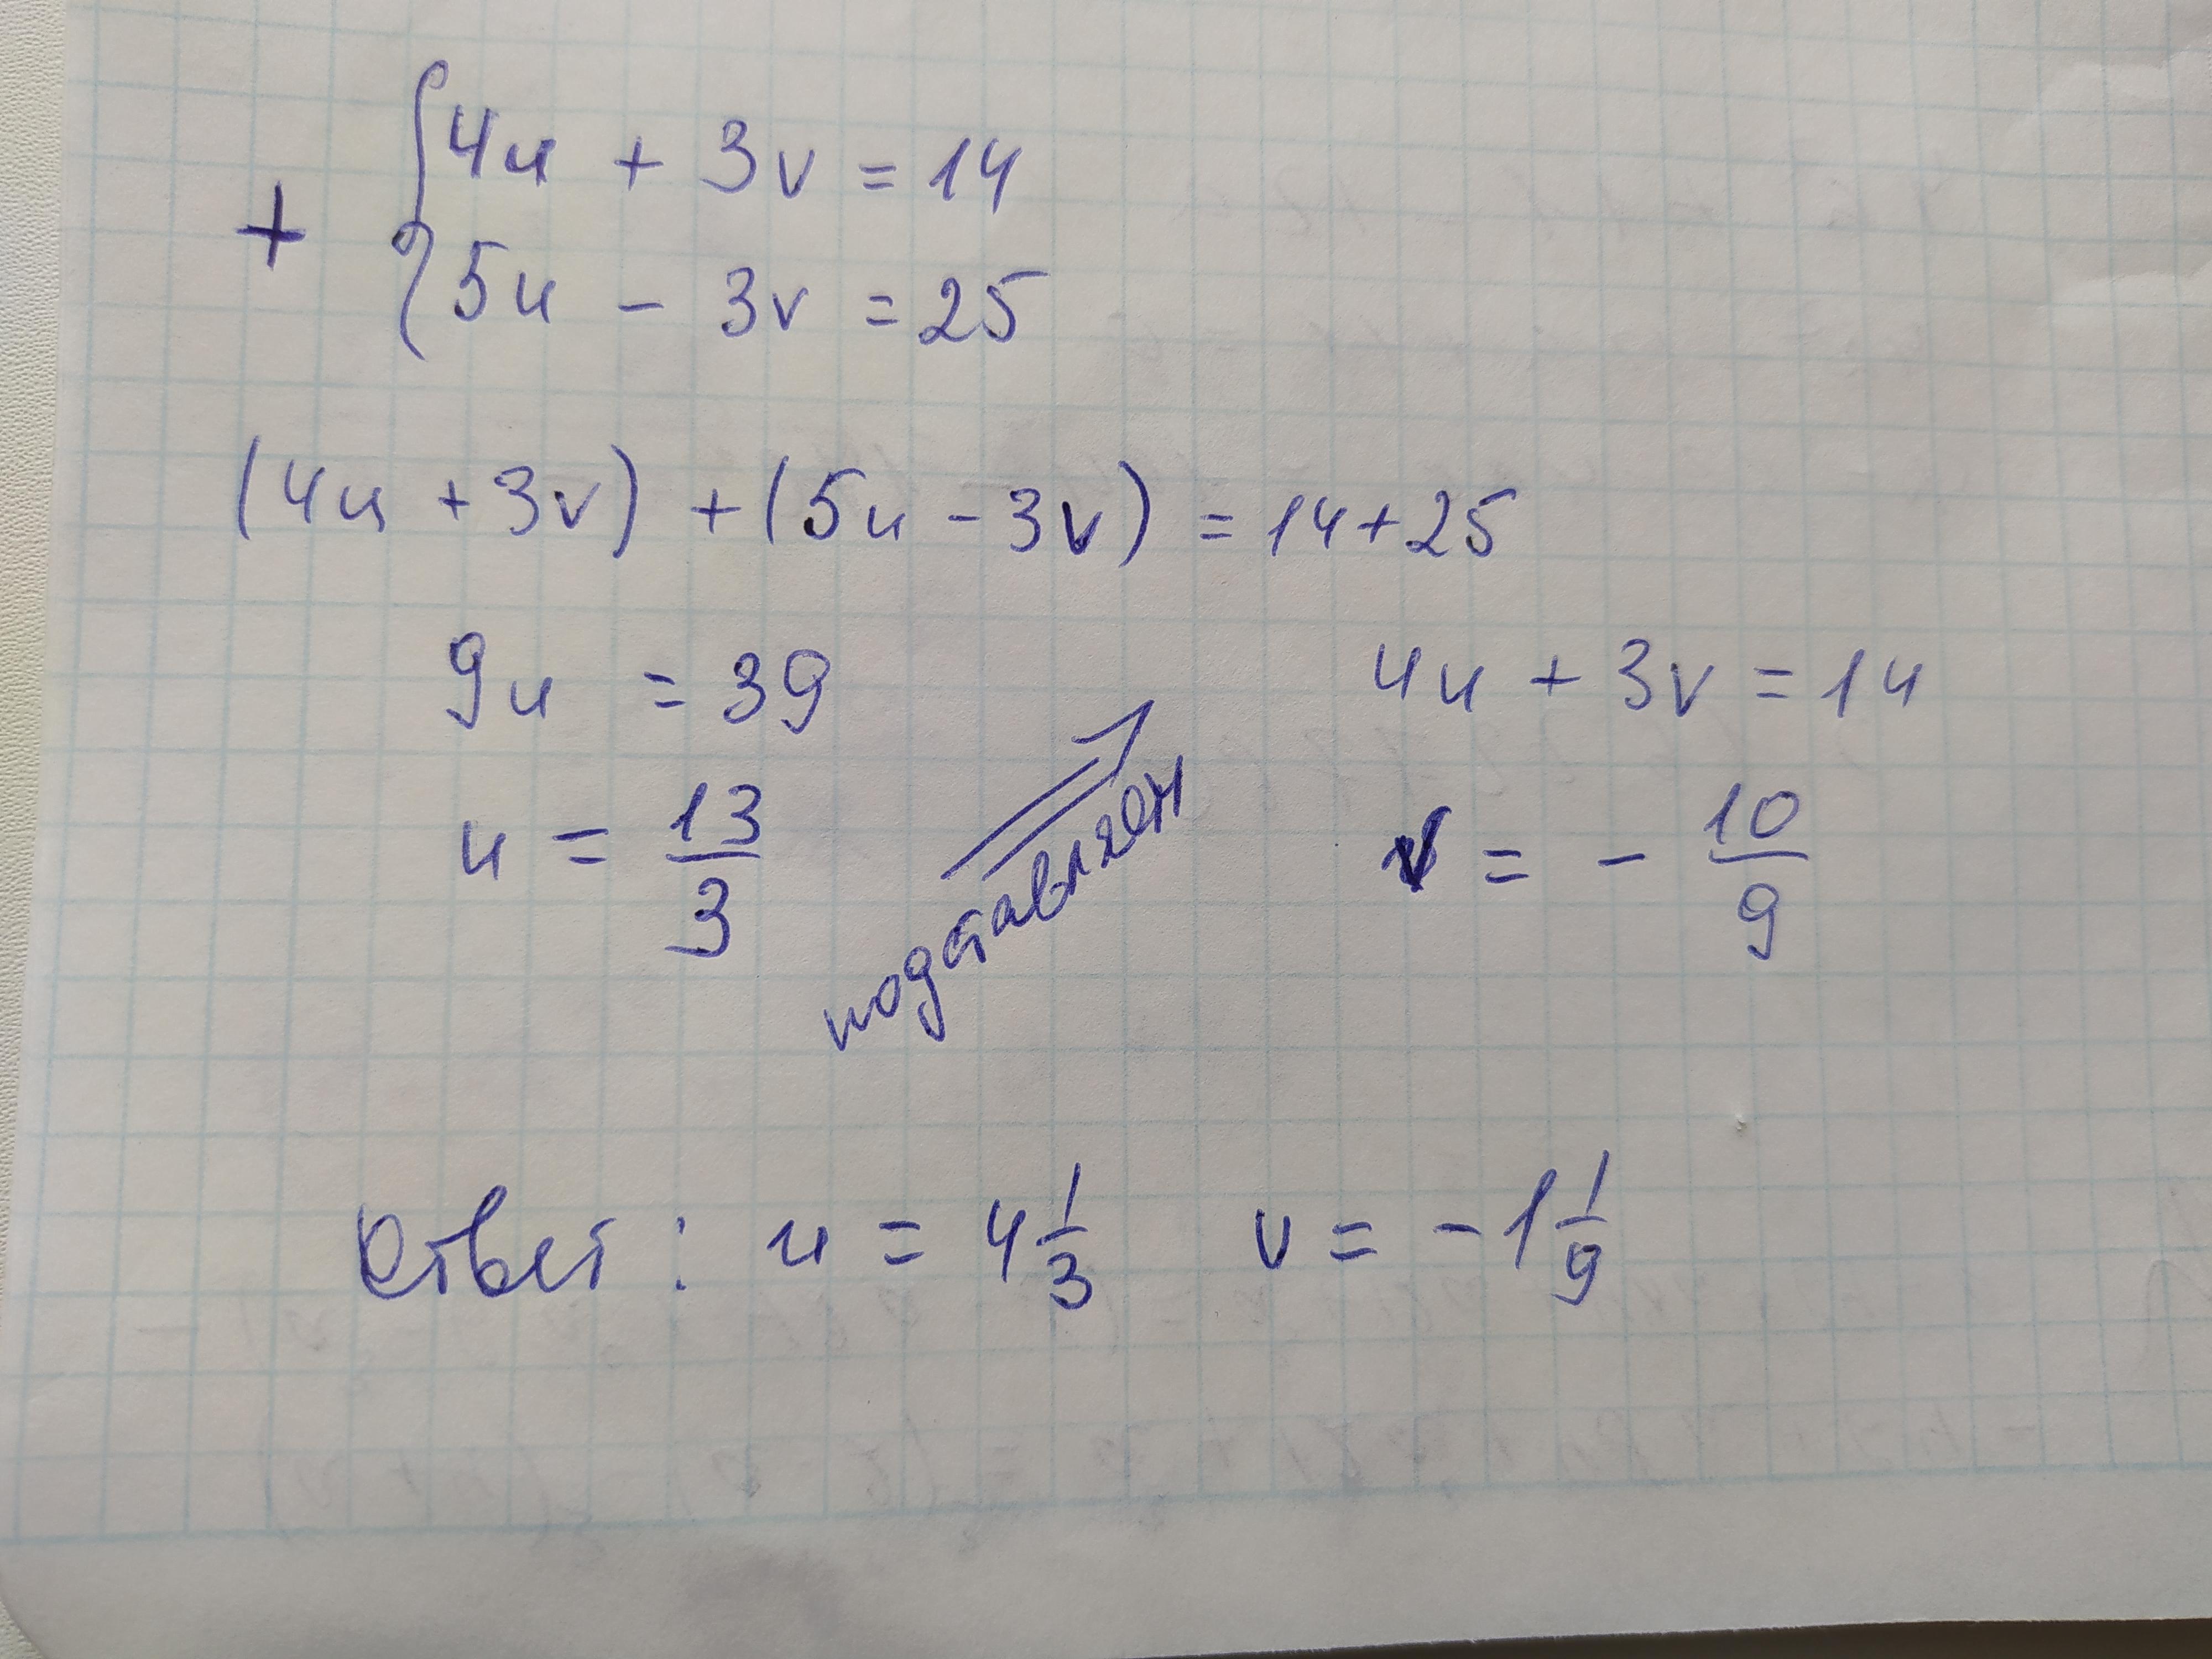 + { 4u + 3v = 14
5u - 3v = 25
(4u + 3v) + (5u - 3v) = 14 + 25
9u = 39
u = 13/3
подставляем
4u + 3v = 14
v = - 10/9
Ответ: u = 4 1/3 v = -1 1/9